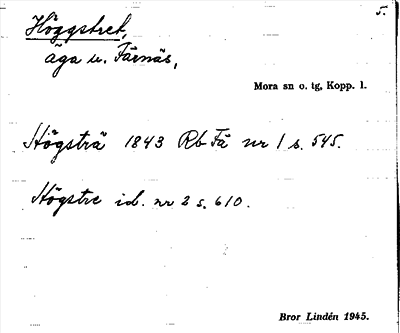 5.
Höggstret,
äga u. Färnäs,
Mora sn o. tg, Kopp. l.
Högsträ 1843 Rb Fä nr 1 s. 545.
Högstre id. nr 2 s. 610.
Bror Lindén 1945.